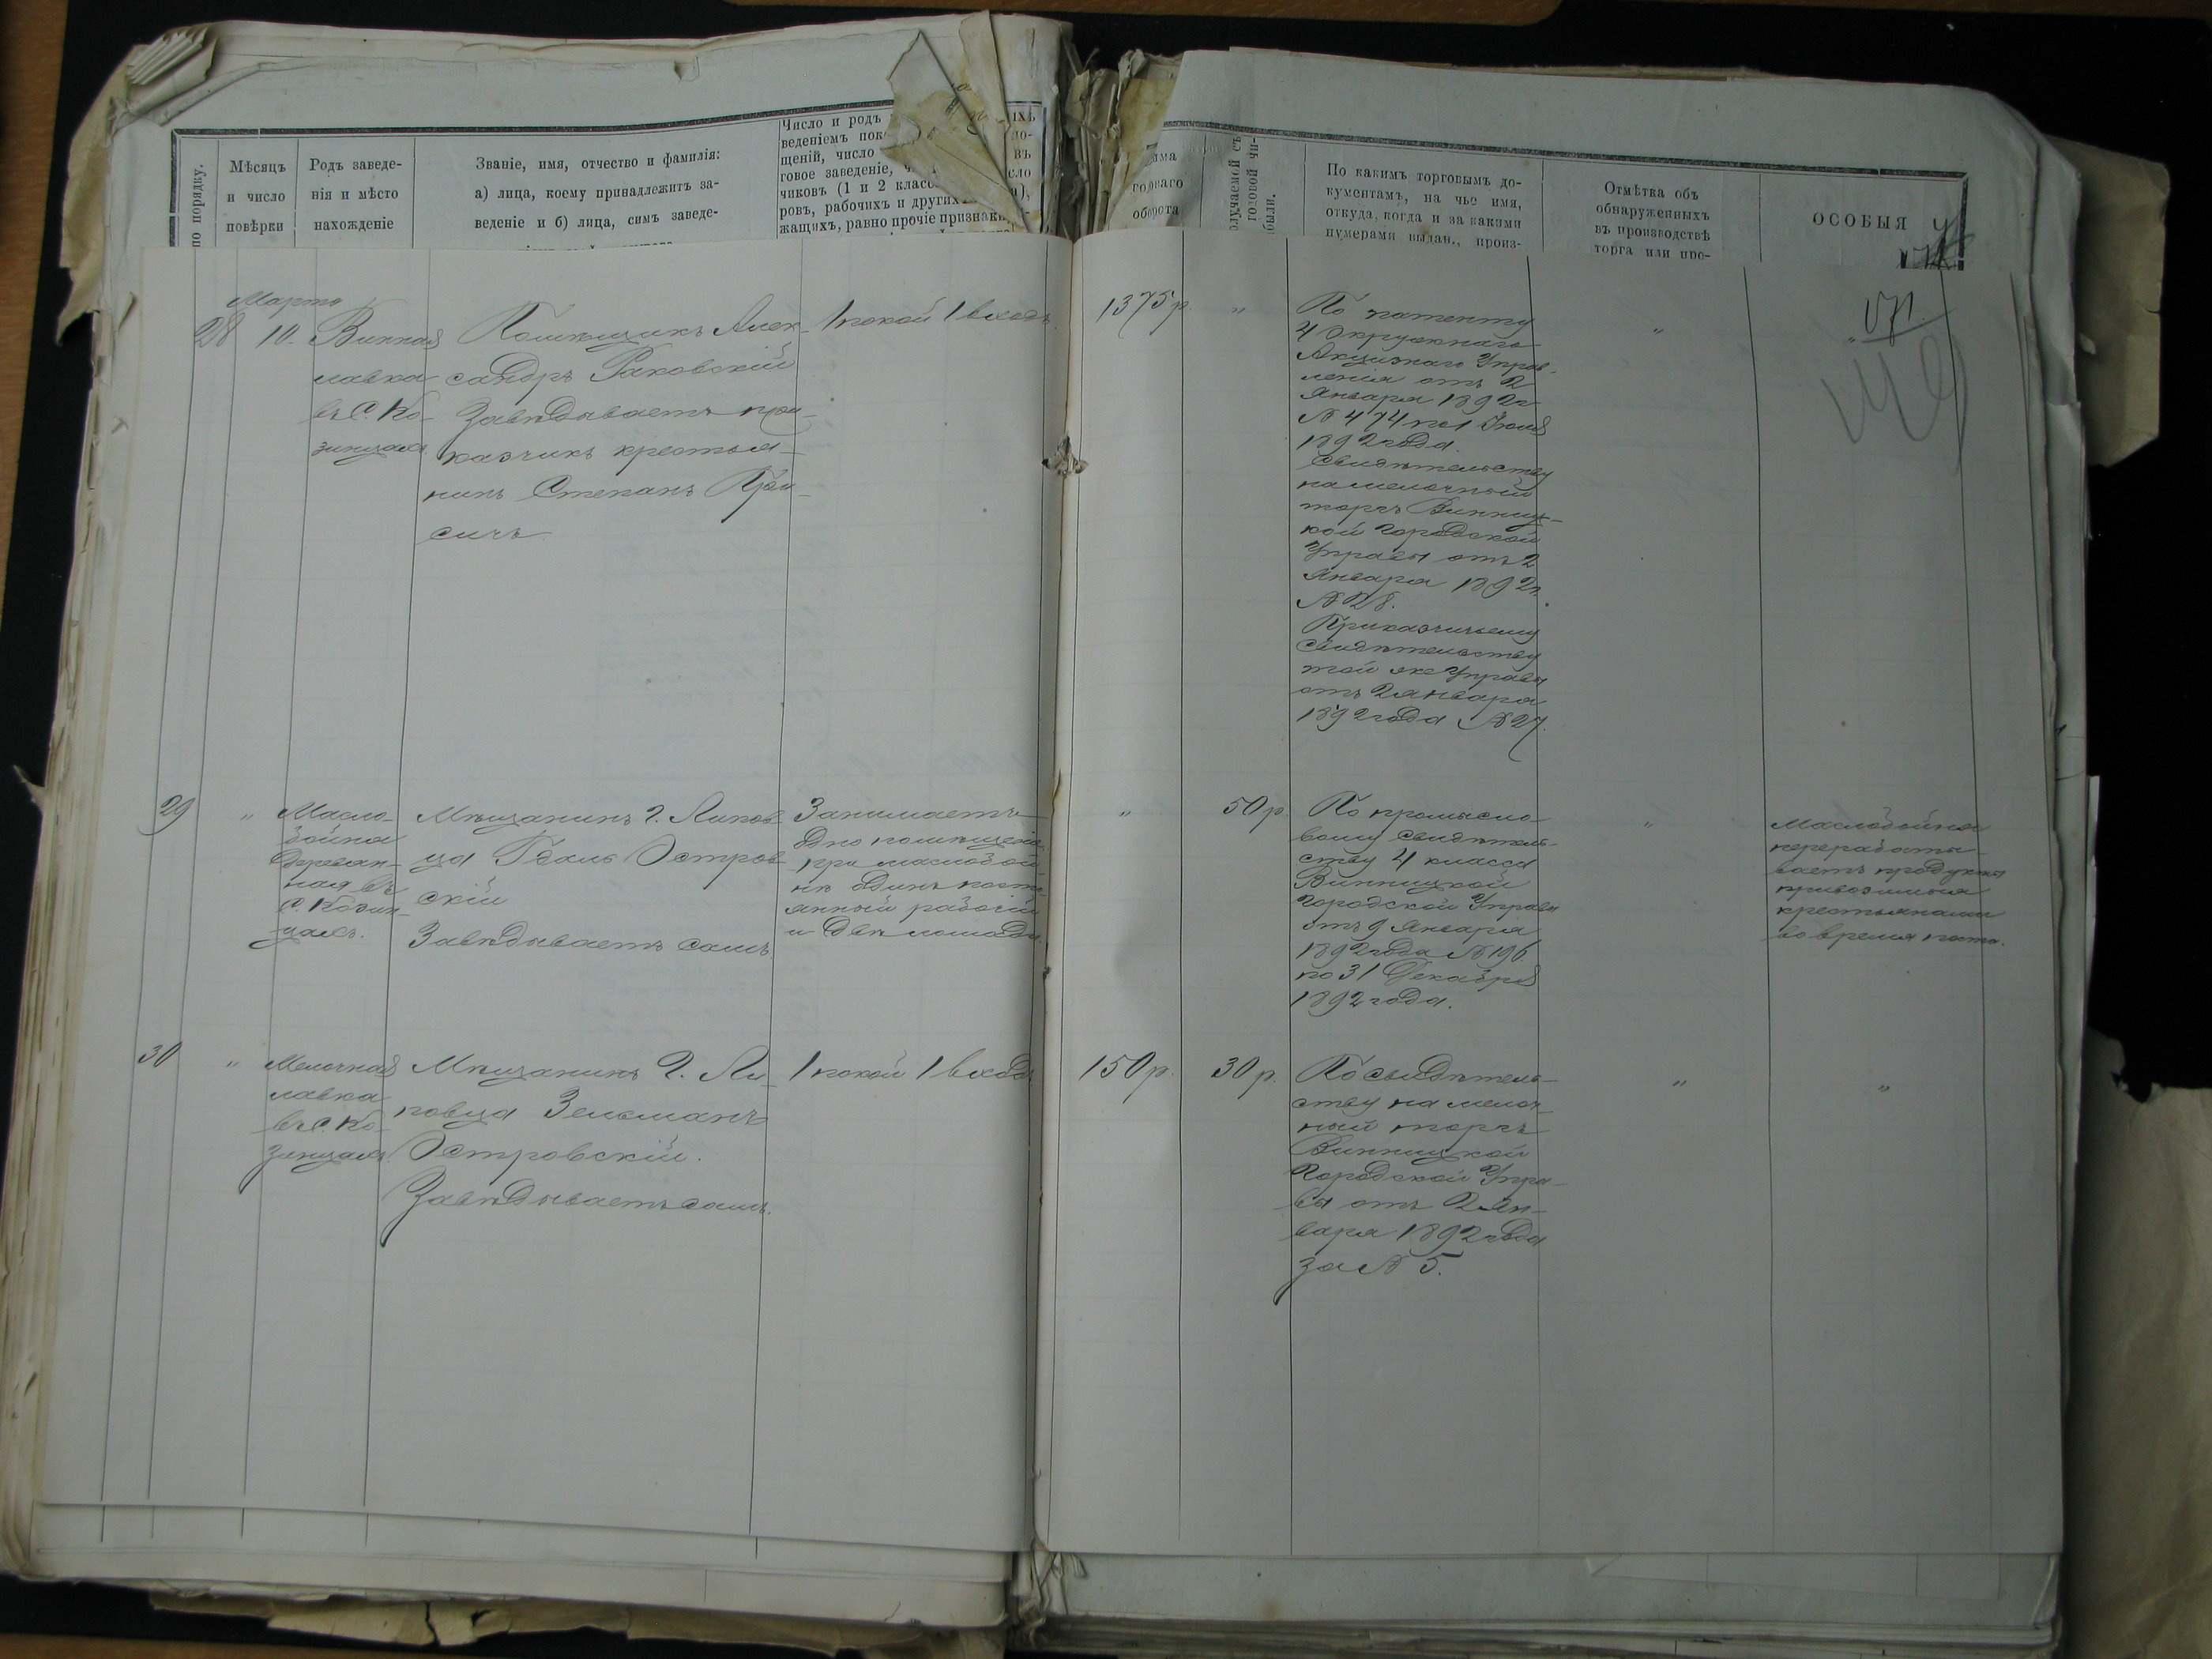 по порядку.
Мѣсяцъ
и число
повѣрки
Родъ заведе-
нія и мѣсто
нахожденіе
Званіе, имя, отчество и фамилія:
а) лица, коему принадлежитъ за-
веденіе и б) лица, симъ заведе-
Число и родъ
веденіемъ
щеній, число
говое заведеніе,
чиковъ (1 и 2
ровъ, рабочихъ и другихъ
жащихъ, равно прочіе
оборота
получаемой съ
годовой чи-
были.
По какимъ торговымъ до-
кументамъ, на чье имя,
откуда, когда и за какими
нумерами выдан., произ-
Отмѣтка объ
обнаруженныхъ
въ производствѣ
торга или про-
ОСОБЫЯ
Марта
28 10.
Винная
лавка
въ с. Ко-
зинцахъ
Помѣщикъ Алек-
сандръ Раковскій
Завѣдываетъ при-
казчикъ крестья-
нинъ Степанъ При-
сичъ
1 покой 1 входъ
1375 р.
"
По патенту
4 Окружнаго
Акцизнаго Управ-
ленія отъ 2
Января 1892 г
№ 474 по 1 Іюля
1892 года.
Свидѣтельству
на мелочный
торгъ Винниц-
кой Городской
Управы отъ 2
Января 1892 г.
№ 28.
Приказчичьему
свидѣтельству
той же Управы
отъ 2 Января
1892 года № 27.
"
"
171.
29
"
Масло-
бойня
деревян-
ная въ
с. Козин-
цахъ.
Мѣщанинъ г. Липов-
ца Гсаль Остров-
скій
Завѣдываетъ самъ.
Занимаетъ
одно помѣщеніе
при маслобой-
нѣ одинъ посто-
янный рабочій
и двѣ лошади.
"
50 р.
По промысло-
вому свидѣтель-
ству 4 класса
Винницкой
Городской Управы
отъ 9 Января
1892 года № 196
по 31 Декабря
1892 года.
"
Маслобойня
перерабаты-
ваетъ продукты
привозимыя
крестьянами
во время поста.
30
"
Мелочная
лавка
въ с. Ко-
зинцахъ.
Мѣщанинъ г. Ли-
повца Зельманъ
Островскій.
Завѣдываетъ самъ.
1 покой 1 входъ
150 р.
30 р.
По свидѣтель-
ству на мелоч-
ный торгъ
Винницкой
Городской Упра-
вы отъ 2 Ян-
варя 1892 года
за № 5.
"
"